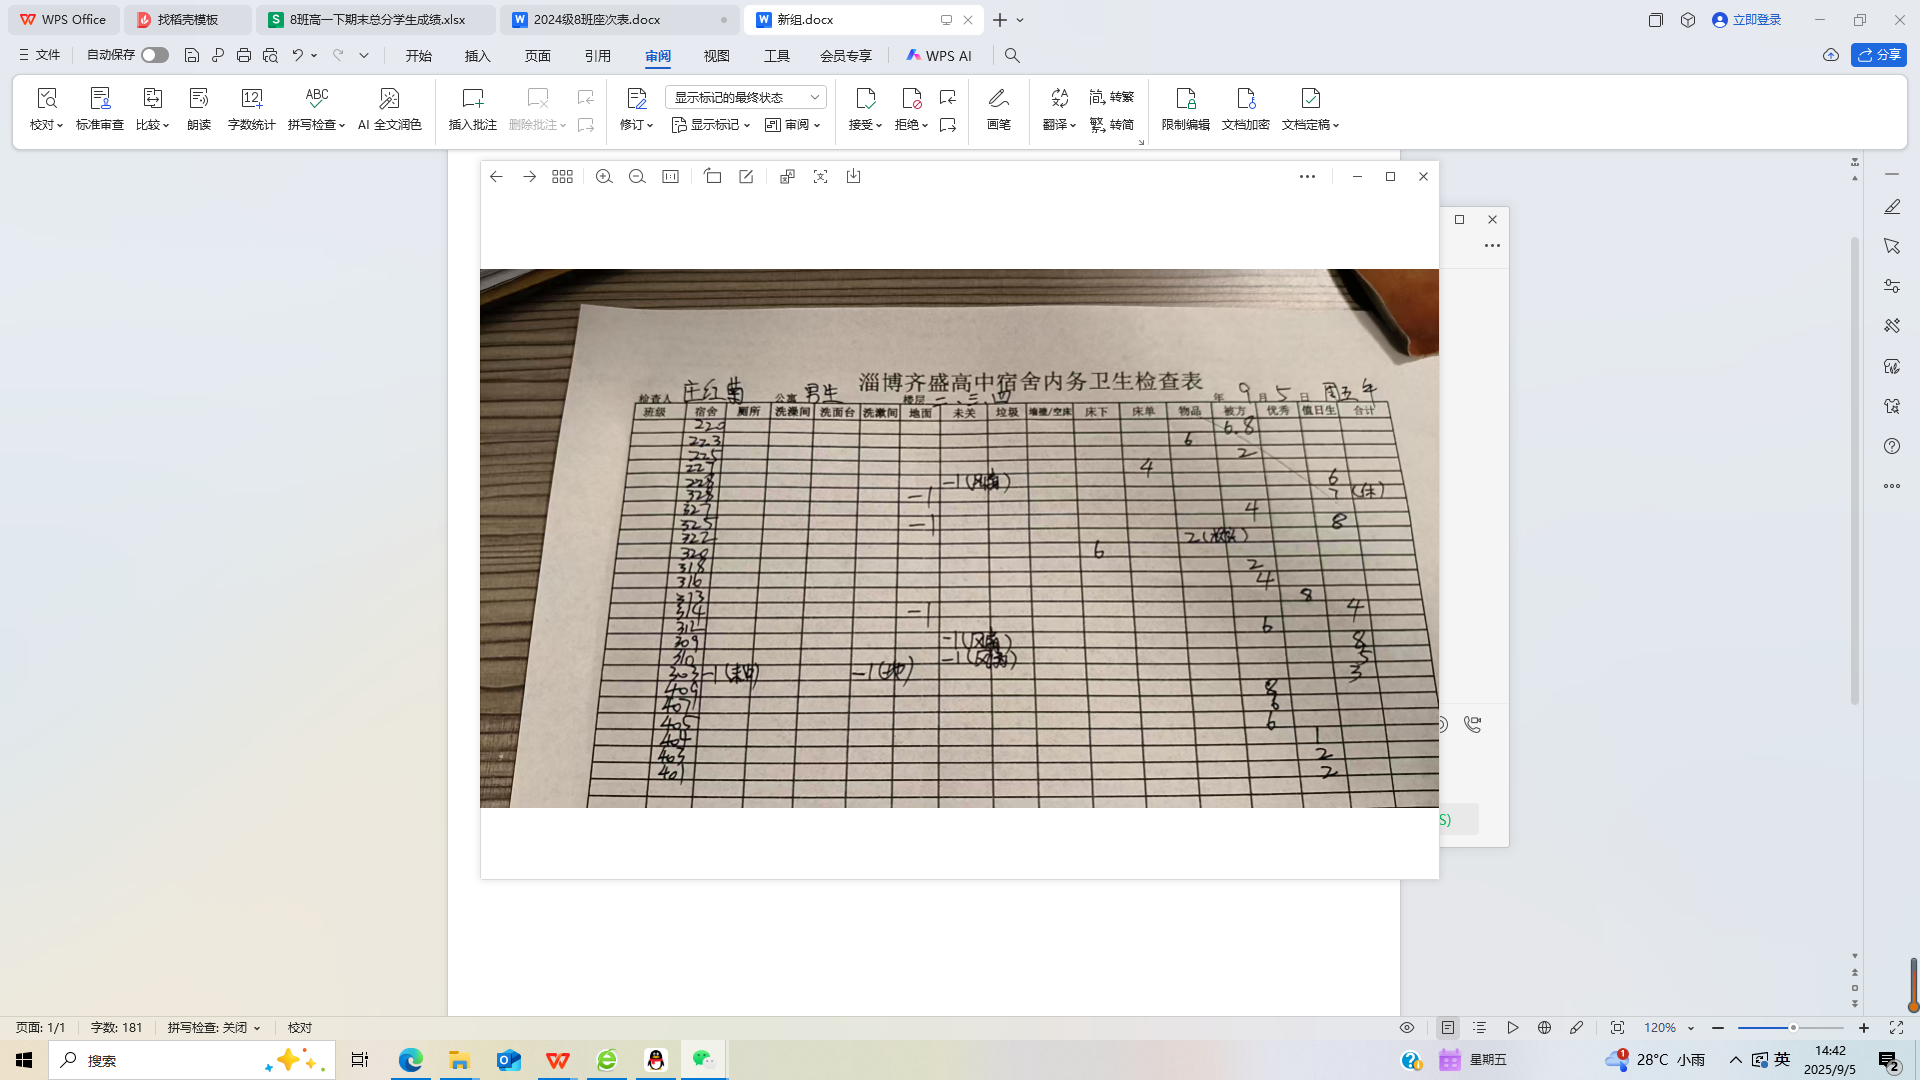 WPS Office 找稻壳模板 8班高一下期末总分学生成绩.xlsx 2024级8班座次表.docx 新组.docx 立即登录
文件 自动保存 开始 插入 页面 引用 审阅 视图 工具 会员专享 WPS AI 分享
显示标记的最终状态 简 转繁
校对 标准审查 比较 朗读 字数统计 拼写检查 AI 全文润色 插入批注 删除批注 修订 显示标记 审阅 接受 拒绝 画笔 翻译 繁 转简 限制编辑 文档加密 文档定稿
淄博齐盛高中宿舍内务卫生检查表
检查人 庄红菊 公寓 男生 楼层 二、三、四 年 9 月 5 日 周五午
班级 宿舍 厕所 洗澡间 洗面台 洗漱间 地面 未关 垃圾 墙壁/空床 床下 床单 物品 被方 优秀 值日生 合计
220 6.8
223 6
225 2
227 4
228 -1 6
328 -1 7
327 4
325 -1 8
322 2
320 6
318 2
316 4
313 8
314 -1 4
312 6
309 -1 8
310 -1 5
303 -1 -1 3
409 8
407 6
405 6
404 1
403 2
401 2
S)
页面: 1/1 字数: 181 拼写检查: 关闭 校对 120%
搜索 星期五 28°C 小雨 英 14:42
2025/9/5 2